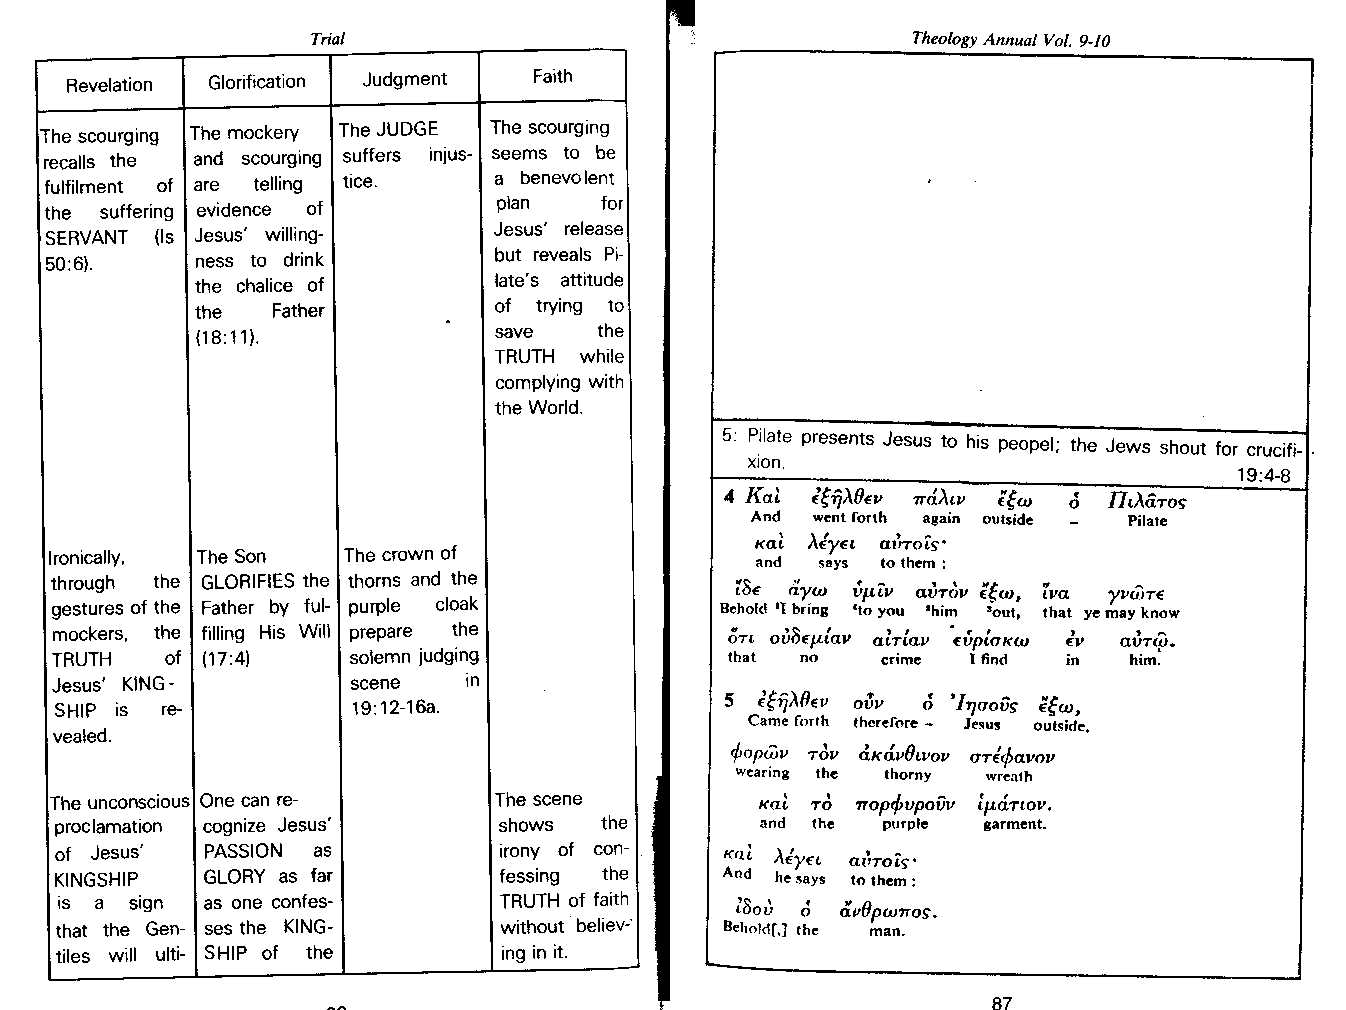 Trial
Revelation
Glorification
Judgment
Faith
The scourging
recalls the
fulfilment of
the suffering
SERVANT (Is
50:6).
The mockery
and scourging
are telling
evidence of
Jesus' willing-
ness to drink
the chalice of
the Father
(18:11).
The JUDGE
suffers injus-
tice.
The scourging
seems to be
a benevolent
plan for
Jesus' release
but reveals Pi-
late's attitude
of trying to
save the
TRUTH while
complying with
the World.
Ironically,
through the
gestures of the
mockers, the
TRUTH of
Jesus' KING-
SHIP is re-
vealed.
The Son
GLORIFIES the
Father by ful-
filling His Will
(17:4)
The crown of
thorns and the
purple cloak
prepare the
solemn judging
scene in
19:12-16a.
The unconscious
proclamation
of Jesus'
KINGSHIP
is a sign
that the Gen-
tiles will ulti-
One can re-
cognize Jesus'
PASSION as
GLORY as far
as one confes-
ses the KING-
SHIP of the
The scene
shows the
irony of con-
fessing the
TRUTH of faith
without believ-
ing in it.
Theology Annual Vol. 9-10
5: Pilate presents Jesus to his peopel; the Jews shout for crucifi-
xion.
19:4-8
4 Καὶ ἐξῆλθεν πάλιν ἔξω ὁ Πιλᾶτος
And went forth again outside – Pilate
καὶ λέγει αὐτοῖς·
and says to them :
ἴδε ἄγω ὑμῖν αὐτὸν ἔξω, ἵνα γνῶτε
Behold ¹I bring ⁴to you ²him ³out, that ye may know
ὅτι οὐδεμίαν αἰτίαν εὑρίσκω ἐν αὐτῷ.
that no crime I find in him.
5 ἐξῆλθεν οὖν ὁ Ἰησοῦς ἔξω,
Came forth therefore – Jesus outside,
φορῶν τὸν ἀκάνθινον στέφανον
wearing the thorny wreath
καὶ τὸ πορφυροῦν ἱμάτιον.
and the purple garment.
καὶ λέγει αὐτοῖς·
And he says to them :
ἰδοὺ ὁ ἄνθρωπος.
Behold[,] the man.
87